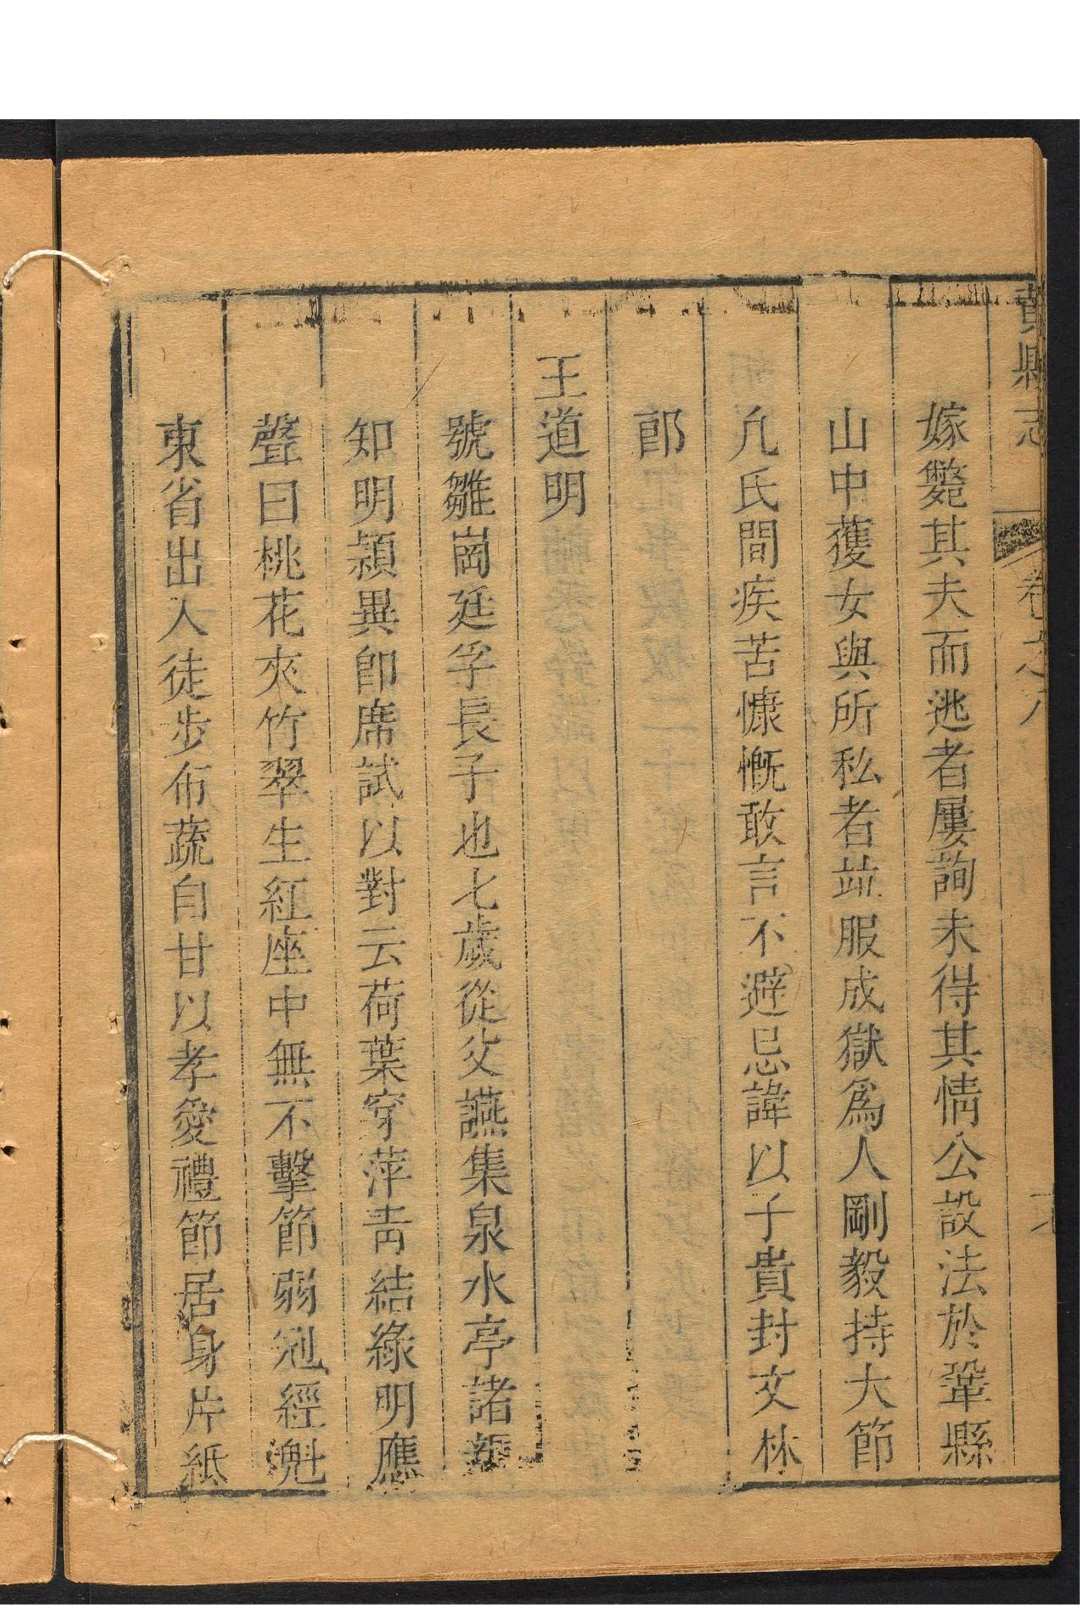 黃縣志 卷之八
嫁斃其夫而逃者屢詢未得其情公設法於鞏縣
山中獲女與所私者竝服成獄爲人剛毅持大節
凢民間疾苦慷慨敢言不避忌諱以子貴封文林
郎
王道明
號雛崗廷孚長子也七歲從父讌集泉水亭諸
知明穎異卽席試以對云荷葉穿萍靑結綠明應
聲曰桃花夾竹翠生紅座中無不擊節弱冠經魁
東省出入徒步布蔬自甘以孝愛禮節居身片紙